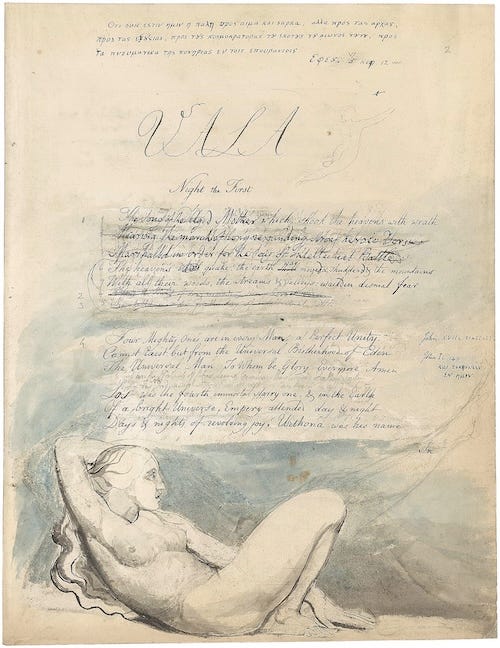 Οτι ουκ εστιν ημιν η παλη προς αιμα και σαρκα, αλλα προς τας αρχας,
προς τας εξουσιας, προς τους κοσμοκρατορας του σκοτους του αιωνος τουτου, προς
τα πνευματικα της πονηριας εν τοις επουρανιοις
Εφεσ: κεφ. 12
2
VALA
Night the First
1 The Song of the Aged Mother which shook the heavens with wrath
Marshalld in order for the day of Intellectual Battle
The heavens quake: the earth moved & shudderd & the mountains
With all their woods, the streams & valleys: waild in dismal fear
2
3
4 Four Mighty Ones are in every Man; a Perfect Unity John XVII
Cannot Exist but from the Universal Brotherhood of Eden John I
The Universal Man. To Whom be Glory Evermore Amen και
εν ημιν
Los was the fourth immortal starry one, & in the Earth
Of a bright Universe, Empery attended day & night
Days & nights of revolving joy, Urthona was his name